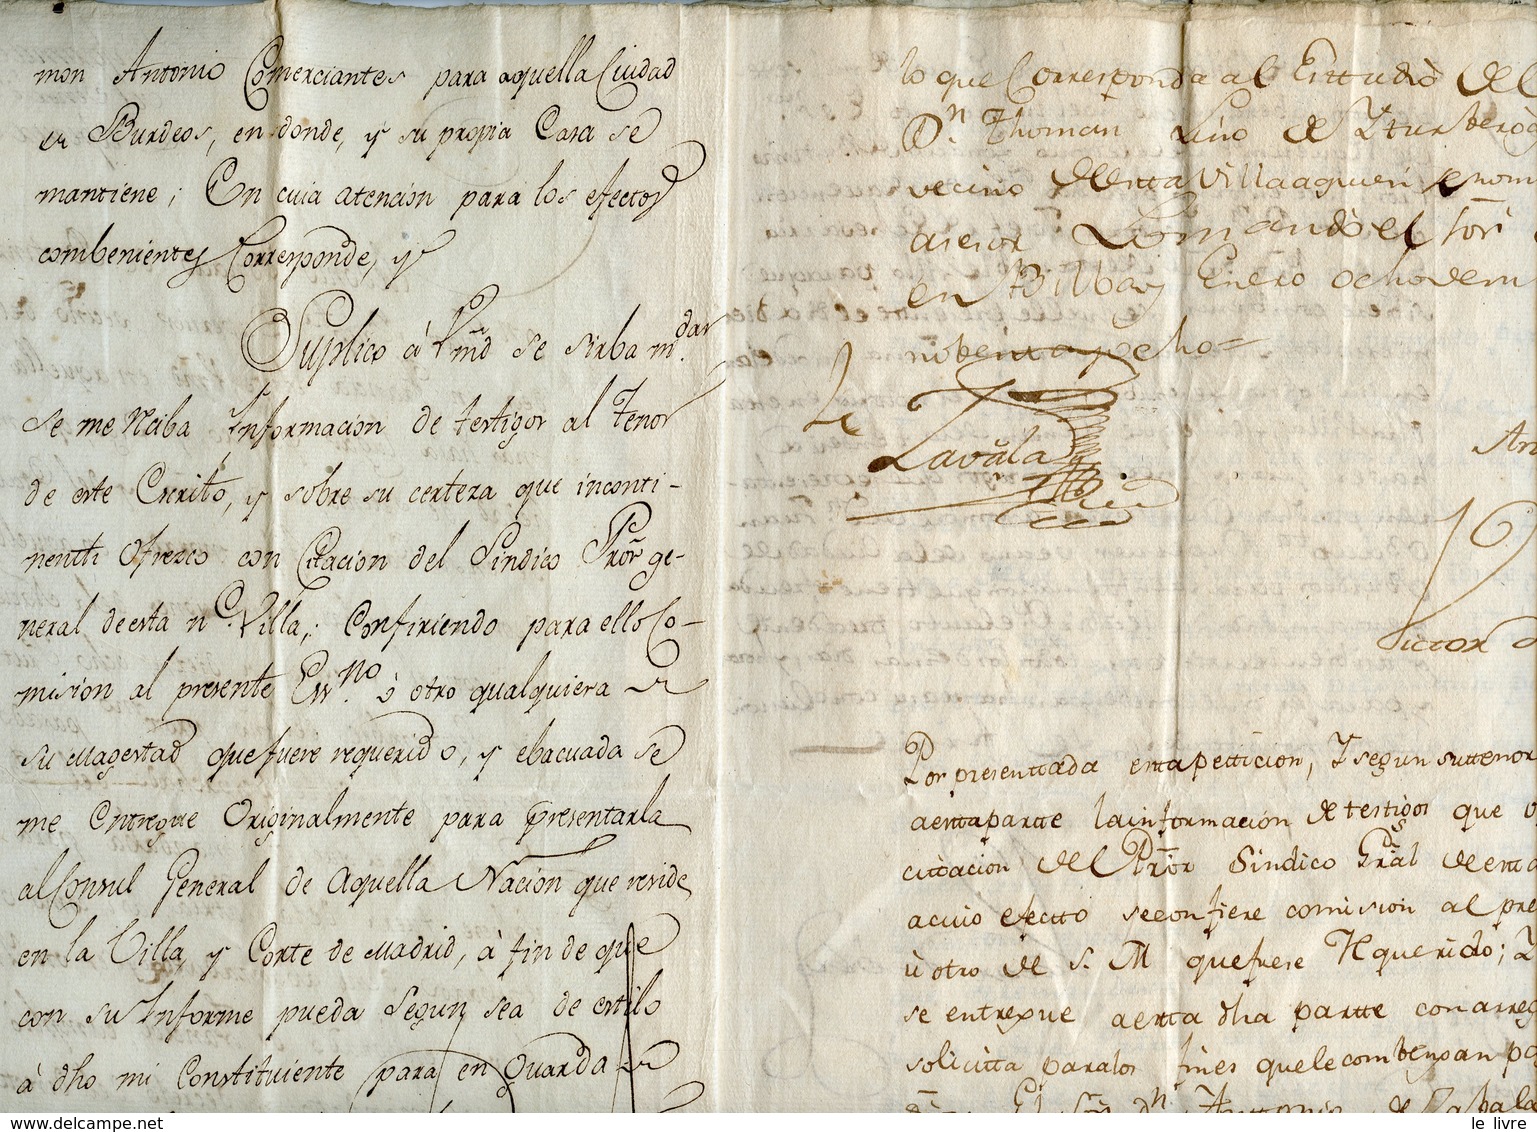 mon Antonio Comerciantes para aquella Ciudad
de Burdeos, en donde, y su propia Casa se
mantiene; En cuia atencion para los efectos
combenientes Corresponde, y
Suplico à Vmd se sirba m.dar
se me reciba Informacion de testigos al Tenor
de este Escrito, y sobre su certeza que inconti-
nentti ofrezco con Citacion del Sindico Pror ge-
neral de esta n. Villa,: Confiriendo para ello Co-
mision al presente Essno. ò otro qualquiera de
su Magestad que fuere requerido, y ebacuada se
me Entregue Originalmente para presentarla
al Consul General de Aquella Nacion que reside
en la Villa y Corte de Madrid, à fin de que
con su Informe pueda segun sea de estilo
à dho mi Constituiente para en Guarda de
lo que Corresponda al Esttudio del
Dn. Thomas Lino de Yturbero
vecino de estta Villa a quien nom
asesor Lo mandò el Sor
en Bilbao y Enero ocho de mu
nobenta y ocho=
Zavala
An
Victor d
Por presenttada estta petticion, Y segun su ttenor
a estta partte la informacion de testigos que o
cittacion del Pror Sindico Gral de estta
a cuio efectto se confiere comision al pre
ù otro de S. M que fuese requerido; Y
se entregue a estta dha partte con arreg
solicitta para los fines que le combengan p
El Sor Dn. Anttonio de Zabala
delcampe.net
le livre